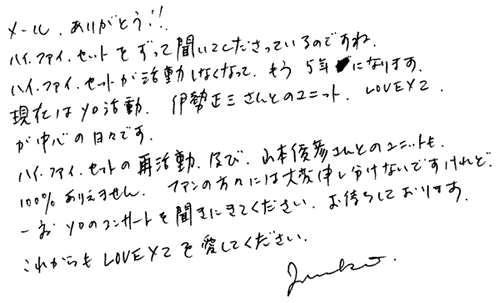 メール、ありがとう!!
ハイ・ファイ・セットをずっと聞いてくださっているのですね。
ハイ・ファイ・セットが活動しなくなって、もう5年になります。
現在はソロ活動、伊勢正三さんとのユニット、LOVE×2
が中心の日々です。
ハイ・ファイ・セットの再活動、及び、山本俊彦さんとのユニットも、
100%ありえません。ファンの方々には大変申し分けないですけれど。
一お ソロのコンサートを聞きにきてください。お待ちしております。
これからもLOVE×2を愛してください。
Junko.